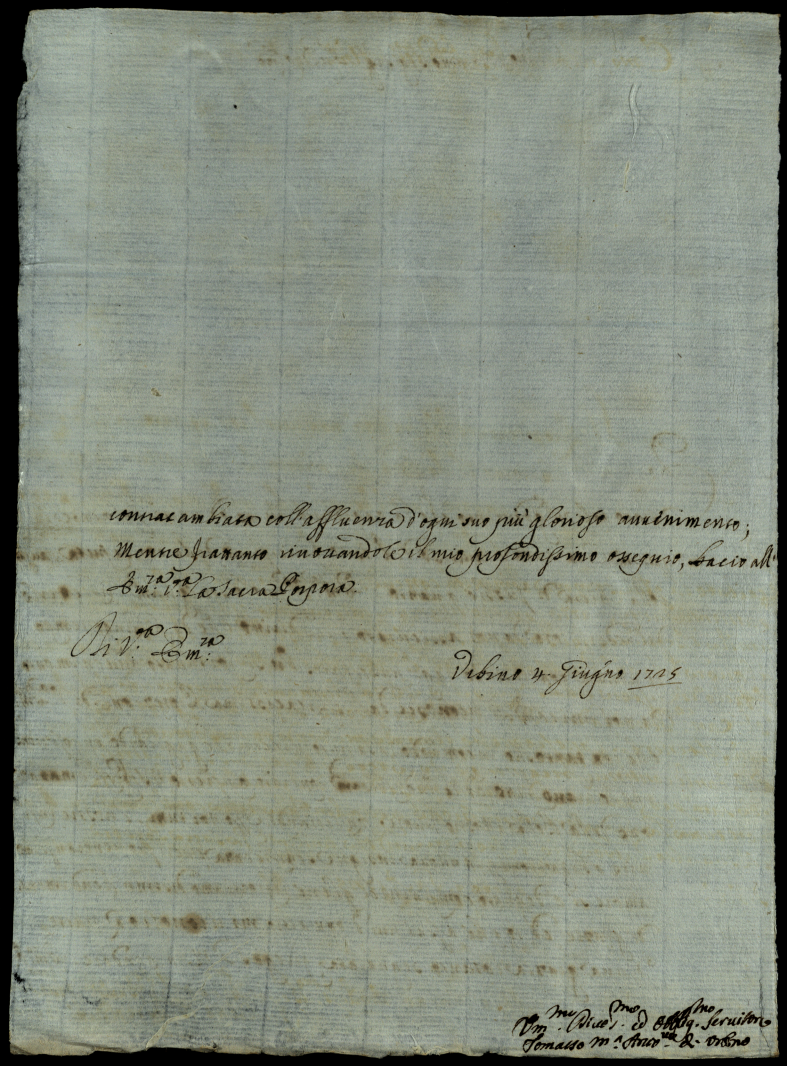 contracambiata coll'affluenza d'ogni suo più glorioso avvenimento;
Mentre frattanto rinovandole il mio profondissimo ossequio, bacio all'
Em.za V.ra la Sacra Porpora.
Di V.ra Em.za
Urbino 4 Giugno 1725
Um.mo Dev.mo ed Obblig.mo Servitore
Tomasso M.a Arciv.vo d'Urbino